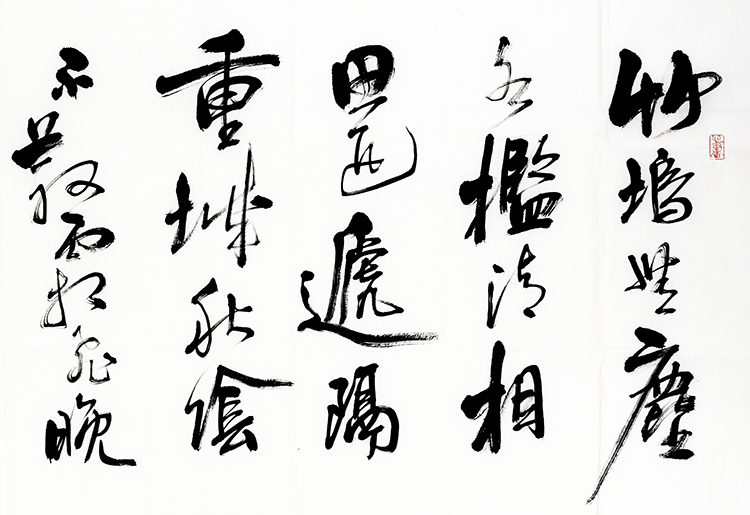 竹塢無塵
水檻清相
思迢遞隔
重城秋陰
不散霜飛晚